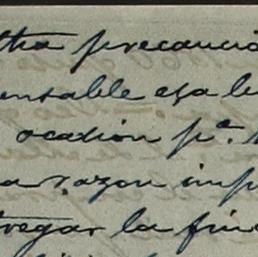 precaució
ensable esa
ocasion pª.
a razon imp
tregar la fin